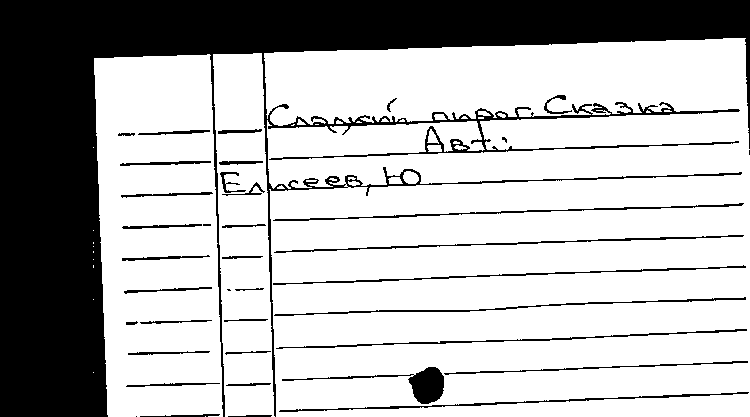 Сладкий пирог. Сказка
Авт.:
Елисеев, Ю